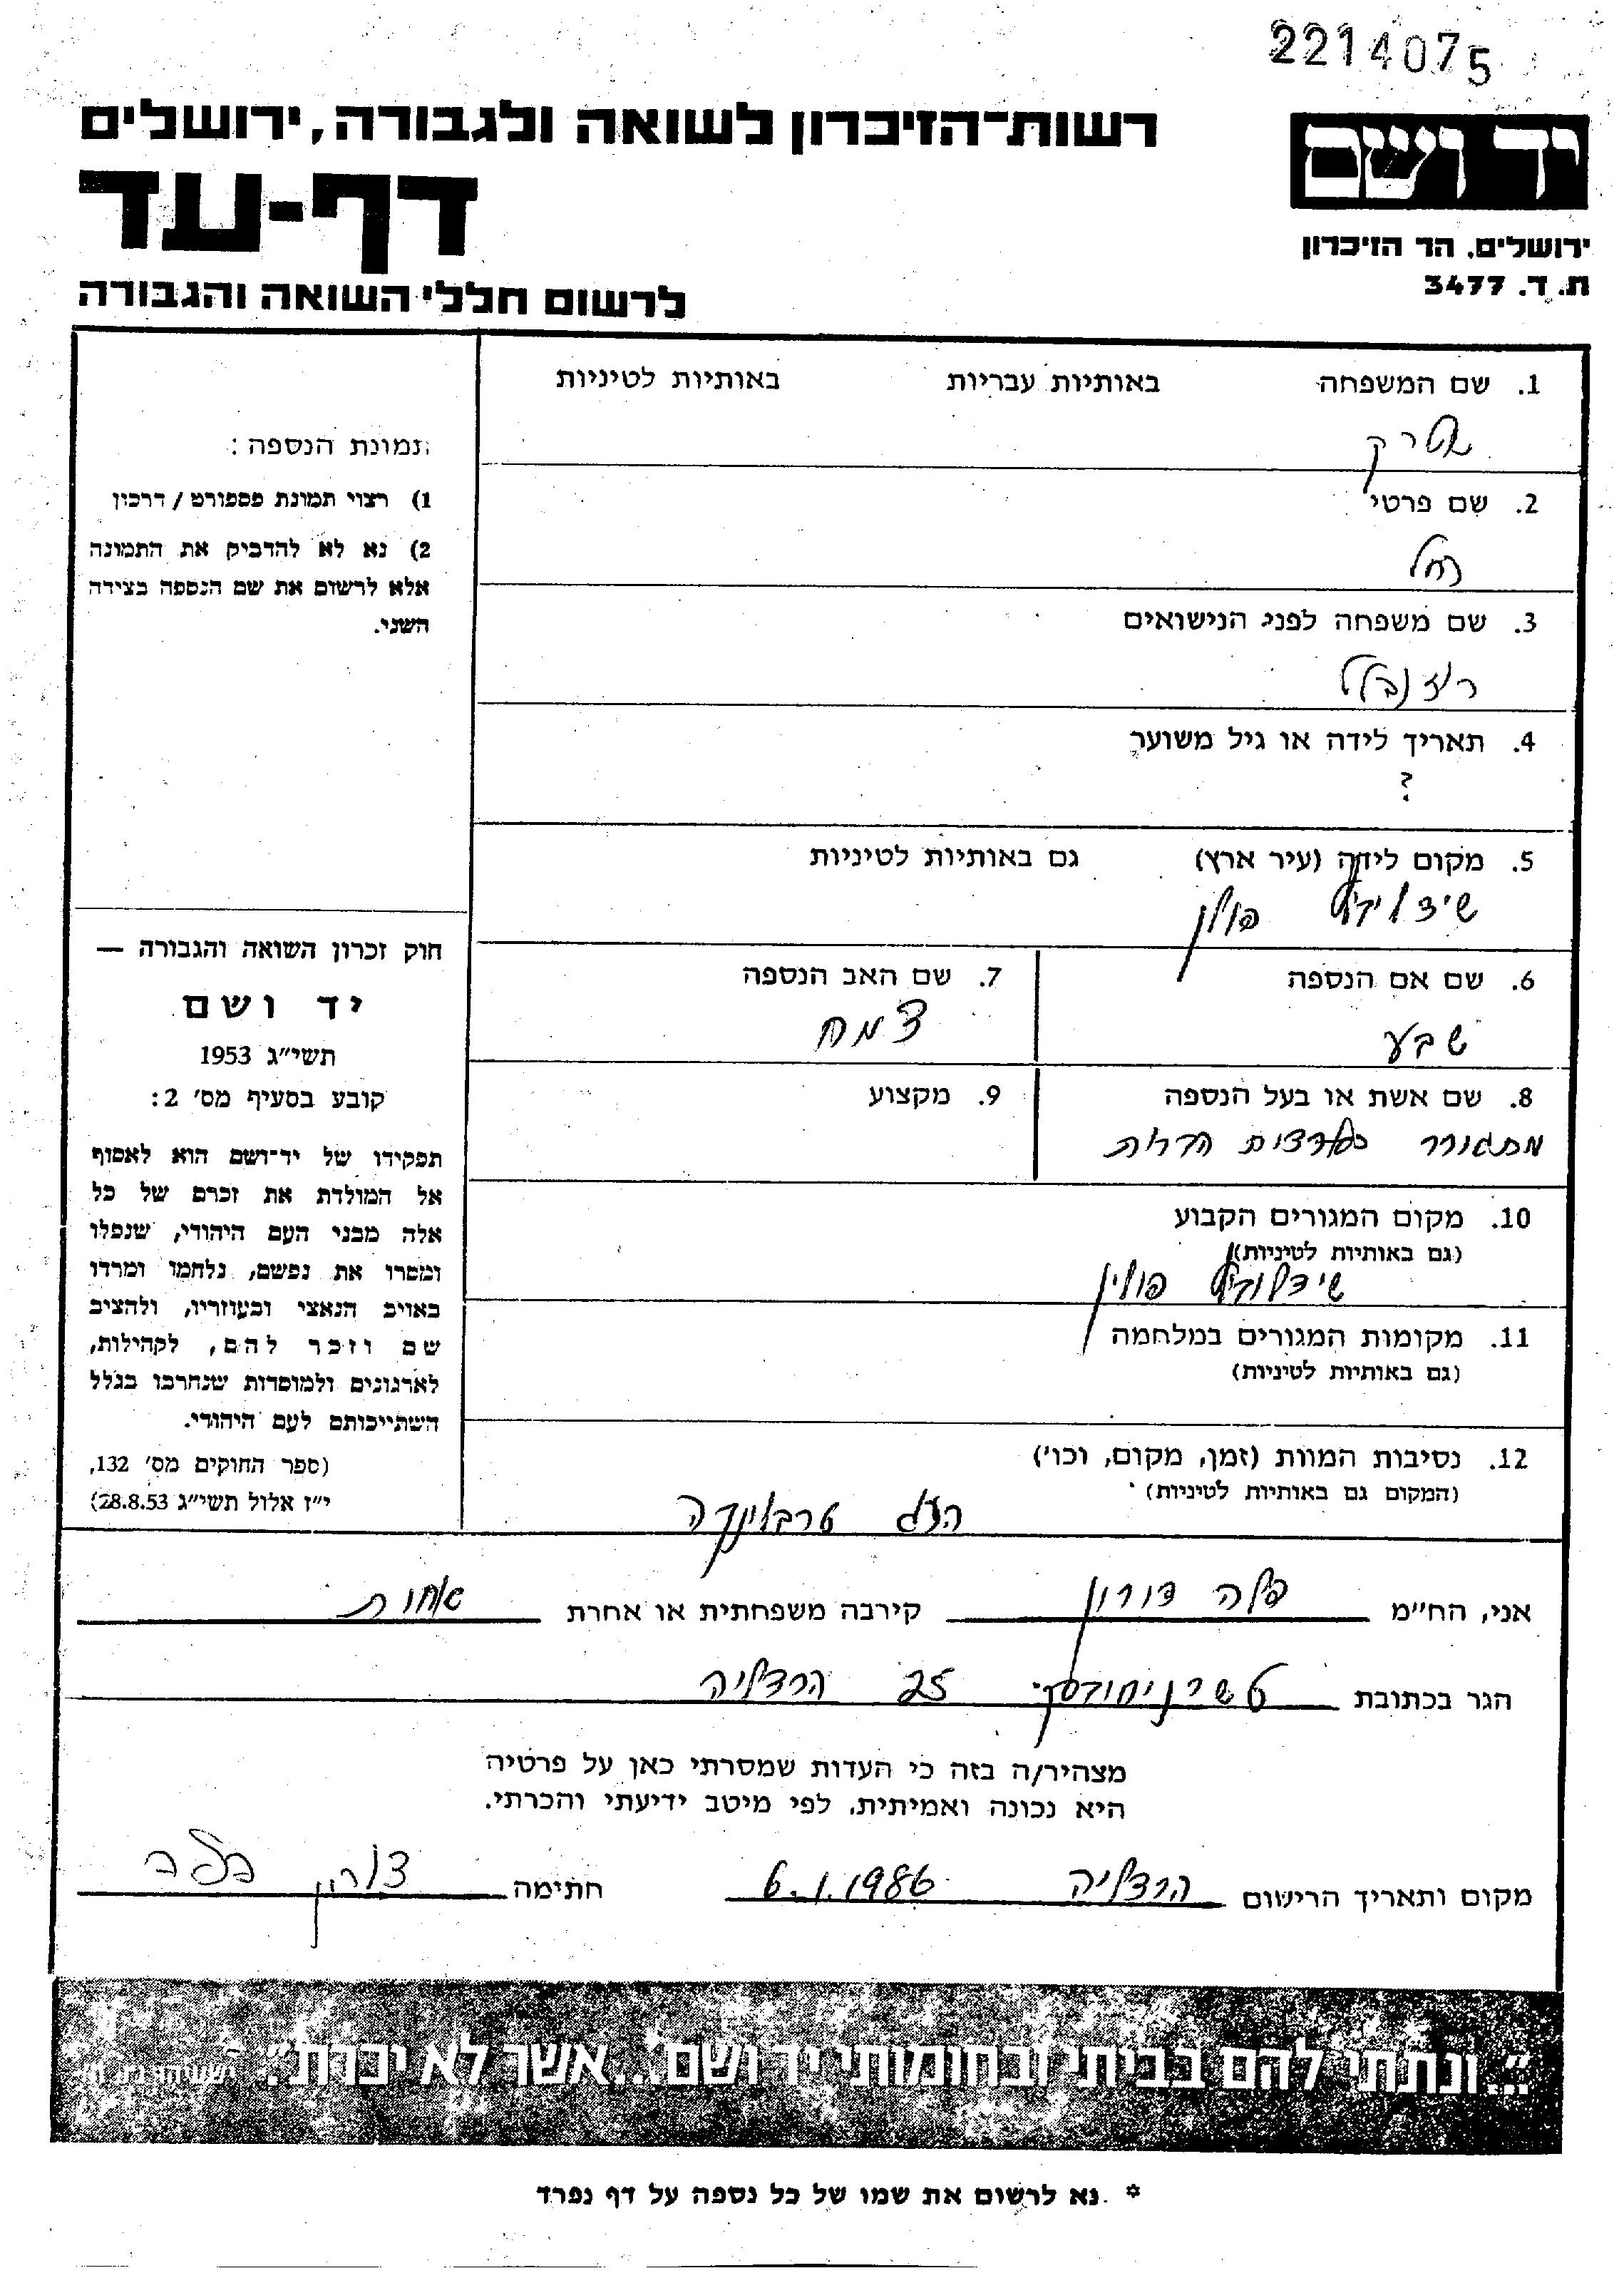 2214075
יד ושם
רשות־הזיכרון לשואה ולגבורה, ירושלים
דף-עד
ירושלים, הר הזיכרון
ת. ד. 3477
לרשום חללי השואה והגבורה
1. שם המשפחה באותיות עבריות באותיות לטיניות
2. שם פרטי
רחל
3. שם משפחה לפני הנישואים
רוזנבלט
4. תאריך לידה או גיל משוער
?
5. מקום לידה (עיר ארץ) גם באותיות לטיניות
פולין
6. שם אם הנספה
שבע
7. שם האב הנספה
צמח
8. שם אשת או בעל הנספה
מתגורר בארצות הברית
9. מקצוע
10. מקום המגורים הקבוע
(גם באותיות לטיניות)
פולין
11. מקומות המגורים במלחמה
(גם באותיות לטיניות)
12. נסיבות המוות (זמן, מקום, וכו')
(המקום גם באותיות לטיניות)
טרבלינקה
תמונת הנספה:
1) רצוי תמונת פספורט / דרכון
2) נא לא להדביק את התמונה
אלא לרשום את שם הנספה בצידה
השני.
חוק זכרון השואה והגבורה —
יד ושם
תשי״ג 1953
קובע בסעיף מס' 2:
תפקידו של יד־ושם הוא לאסוף
אל המולדת את זכרם של כל
אלה מבני העם היהודי, שנפלו
ומסרו את נפשם, נלחמו ומרדו
באויב הנאצי ובעוזריו, ולהציב
שם וזכר להם, לקהילות,
לארגונים ולמוסדות שנחרבו בגלל
השתייכותם לעם היהודי.
(ספר החוקים מס' 132,
י״ז אלול תשי״ג 28.8.53)
אני, הח״מ קירבה משפחתית או אחרת אחות
הגר בכתובת טשרניחובסקי 25 הרצליה
מצהיר/ה בזה כי העדות שמסרתי כאן על פרטיה
היא נכונה ואמיתית, לפי מיטב ידיעתי והכרתי.
מקום ותאריך הרישום הרצליה 6.1.1986 חתימה
"...ונתתי להם בביתי ובחומותי יד ושם...אשר לא יכרת".
* נא לרשום את שמו של כל נספה על דף נפרד